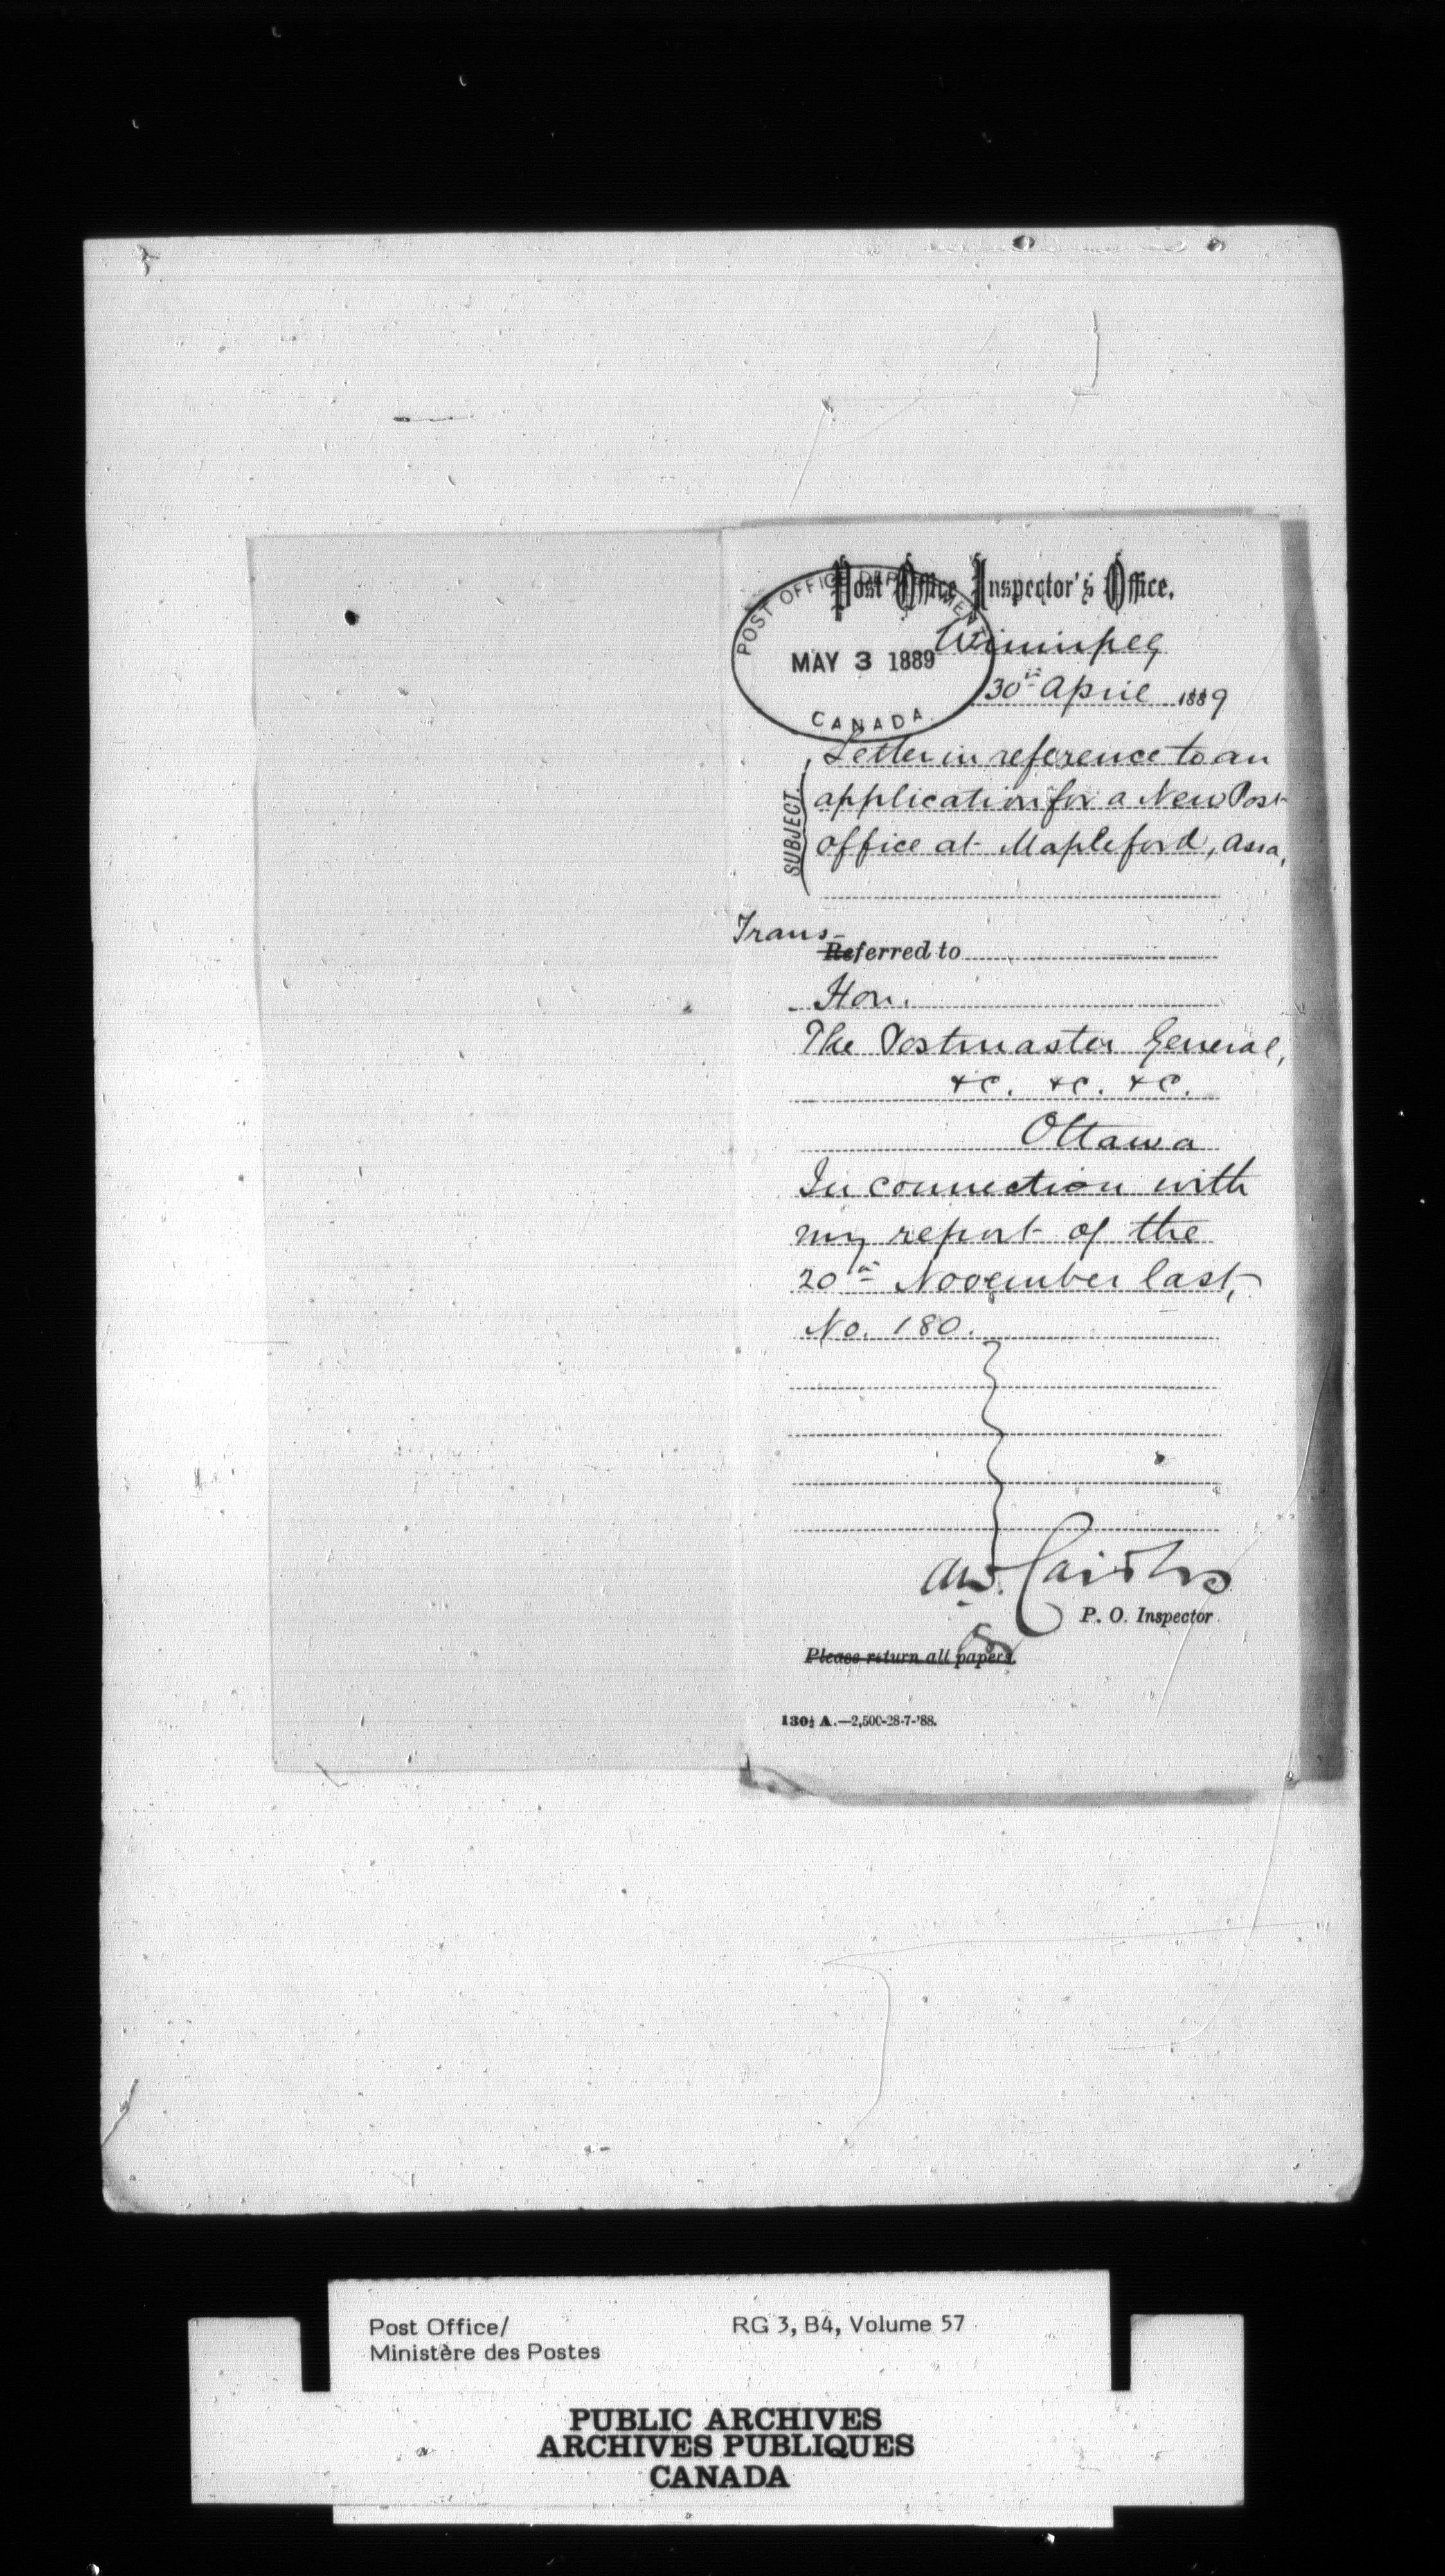 Post Office Inspector's Office.
POST OFFICE DEPARTMENT
MAY 3 1889
CANADA
Winnipeg
30th April 1889
SUBJECT.
Letter in reference to an
application for a New Post
office at Mapleford, Assa,
Trans-
Referred to
Hon.
The Postmaster General,
&c. &c. &c.
Ottawa
In connection with
my report of the
20th November last,
No. 180.
P. O. Inspector
Please return all papers.
130½ A.—2,500-28-7-'88.
Post Office/
Ministère des Postes
RG 3, B4, Volume 57
PUBLIC ARCHIVES
ARCHIVES PUBLIQUES
CANADA